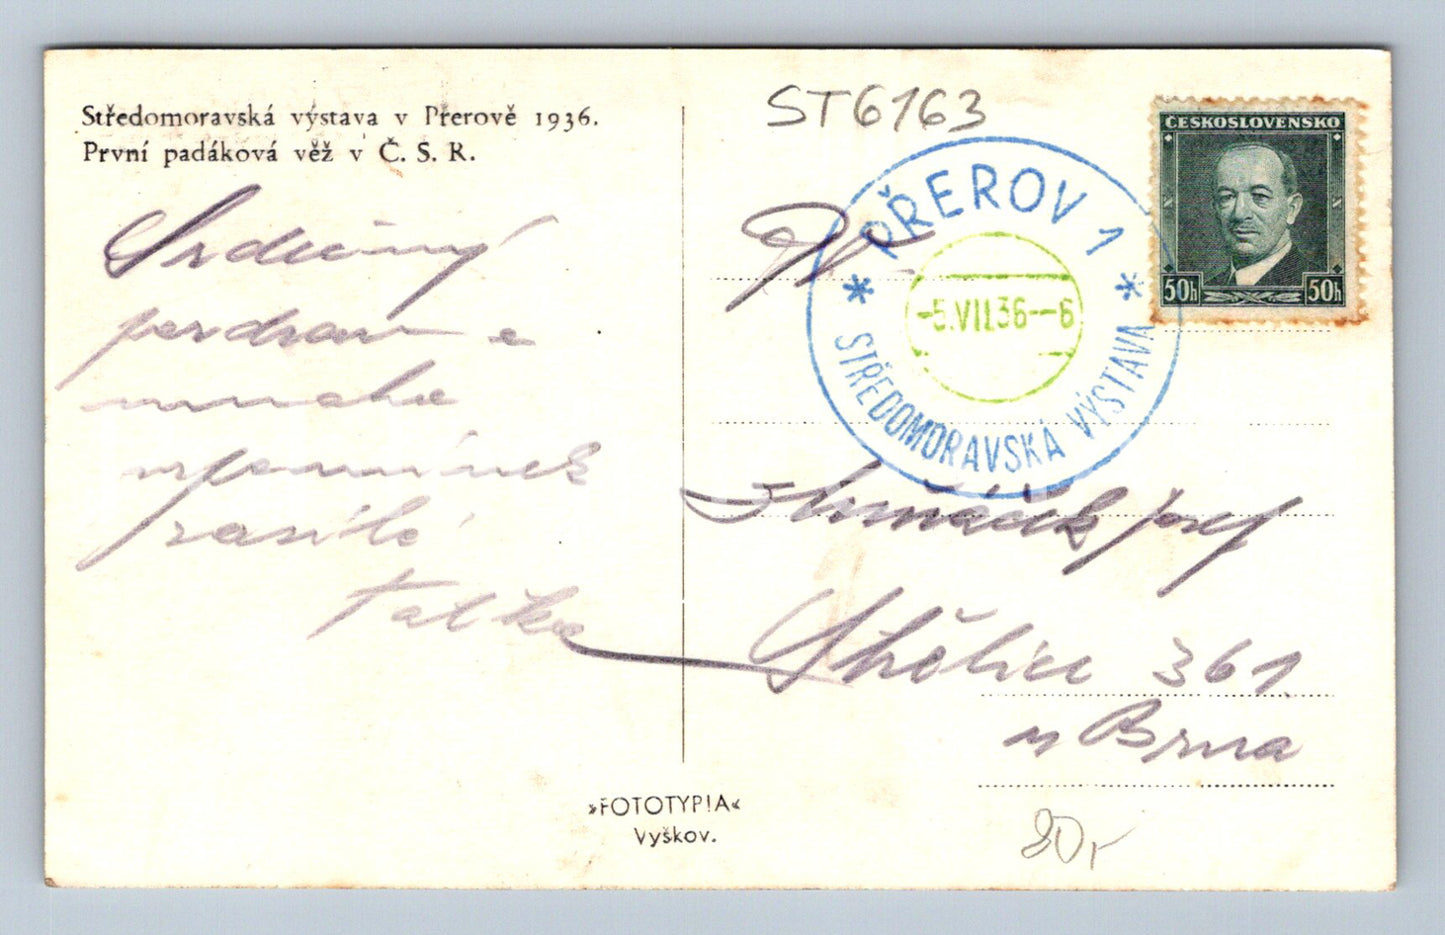 Středomoravská výstava v Přerově 1936.
První padáková věž v Č. S. R.
ST6163
ČESKOSLOVENSKO
50h 50h
PŘEROV 1
-5.VII.36--6
* STŘEDOMORAVSKÁ VÝSTAVA *
Srdečný
pozdrav a
mnoho
vzpomínek
zasílá
Tatka
Pt.
Josef
Střelice 361
u Brna
»FOTOTYPIA«
Vyškov.
80,-